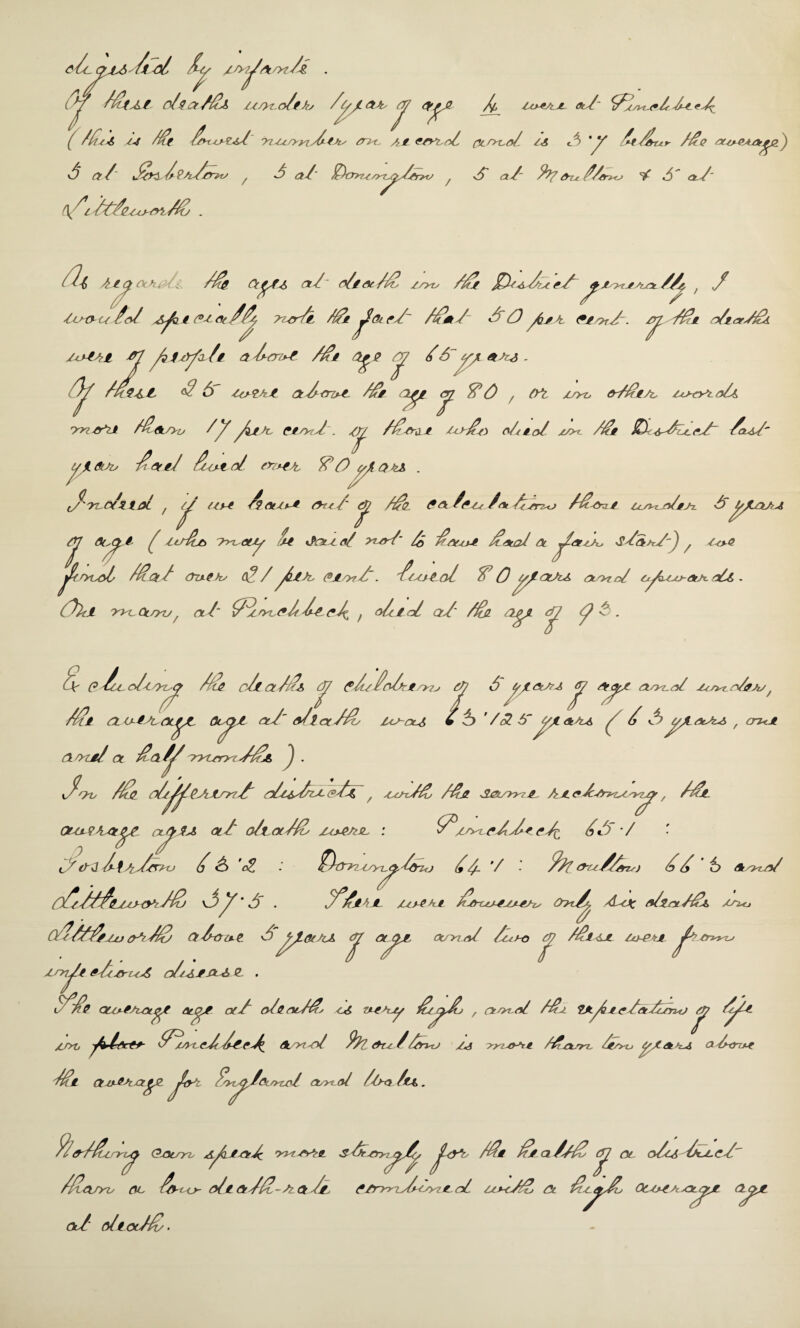 by infants .
Of these deaths under 1 year of age 4 were at Pinchbeck
(this is the lowest number on record and is 3·7 below the average)
3 at Gosberton, 3 at Donington, 5 at Moulton & 5 at
Littleworth .
As regards the ages at death in the District generally, I
would specially note the fact that 50 per cent. of the deaths
were of people above the age of 65 years.
Of these 25 were above the age of 80, or in other words
more than 17 per cent. of those who died in the District last
year had lived over 80 years .
Indeed, if we leave out of the calculation those under 5 years
of age (who may be said not to have had a fair start), we
find that over 21 per cent. lived 80 years and upwards.
One man, at Pinchbeck, died at the age of 93.
By excluding the deaths of children of 5 years of age and under,
the average age at death was 63·125 years (63 years, one
and a half months).
In the different districts, with the same reckoning, the
average ages at death were : Pinchbeck 65·1 :
Gosberton 63·2 : Donington 64·1 : Moulton 66·3 and
Littleworth 37·5 . There were however only six deaths in
Littleworth above 5 years of age and two of these were from
disease .
The average age at death is very high, and the expectation of life
in Pinchbeck and Moulton is more than ten years above
the average for England and Wales.
Nothing can speak more strongly for the health of a district
than a low death-rate combined with a high average age
at death.